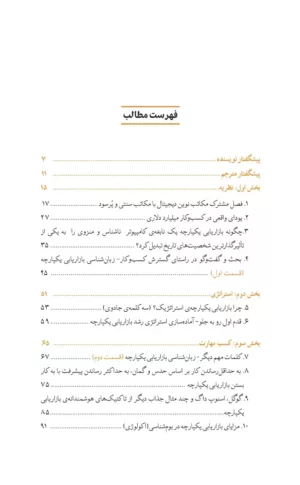 فهرست مطالب
پیشگفتار نویسنده ۷
پیشگفتار مترجم ۱۱
بخش اول: نظریه ۱۵
۱. فصل مشترک مکاتب نوین دیجیتال با مکاتب سنتی و پُرسود ۱۷
۲. یودای واقعی در کسب‌وکار میلیارد دلاری ۲۷
۳. چگونه بازاریابی یکپارچه یک نابغه‌ی کامپیوتر ناشناس و منزوی را به یکی از
تأثیرگذارترین شخصیت‌های تاریخ تبدیل کرد؟ ۳۵
۴. بحث و گفت‌وگو در راستای گسترش کسب‌وکار- زبان‌شناسی بازاریابی یکپارچه
(قسمت اول) ۴۵
بخش دوم: استراتژی ۵۱
۵. چرا بازاریابی یکپارچه‌ی استراتژیک؟ (سه کلمه‌ی جادوی) ۵۳
۶. قدم اول رو به جلو- آماده‌سازی استراتژی رشد بازاریابی یکپارچه ۵۹
بخش سوم: کسب مهارت ۶۵
۷. کلمات مهم دیگر- زبان‌شناسی بازاریابی یکپارچه (قسمت دوم) ۶۷
۸. به حداقل‌رساندن کار بر اساس حدس و گمان، به حداکثر رساندن پیشرفت با به کار
بستن بازاریابی یکپارچه ۷۵
۹. گوگل، اسنوپ داگ و چند مثال جذاب دیگر از تاکتیک‌های هوشمندانه‌ی بازاریابی
یکپارچه ۸۵
۱۰. مزایای بازاریابی یکپارچه در بوم‌شناسی (اکولوژی) ۹۱